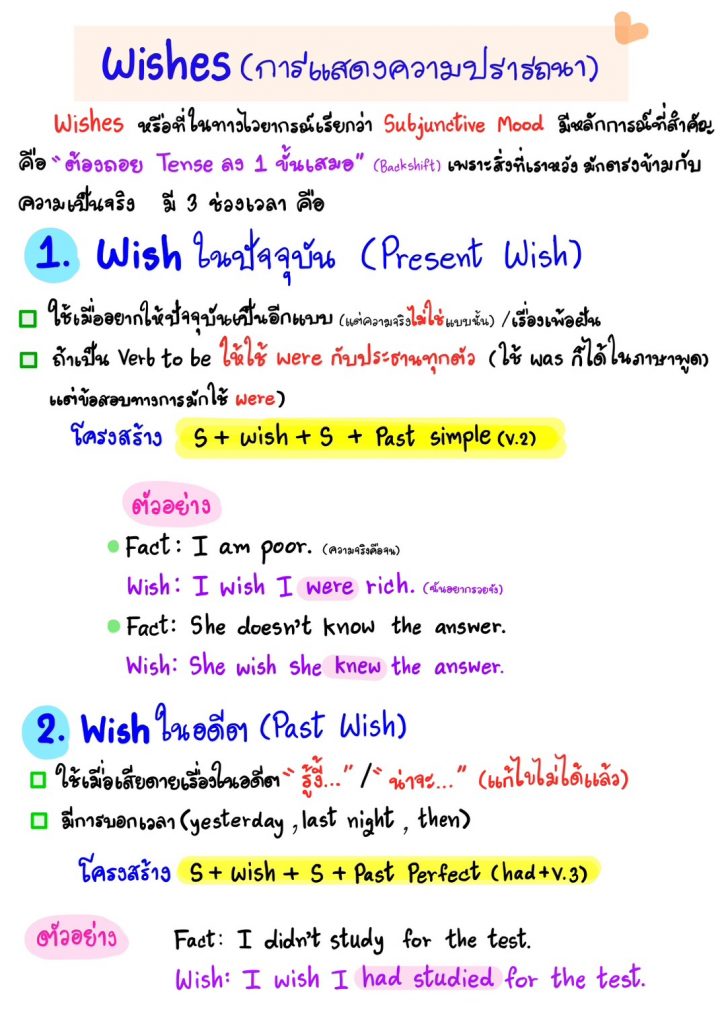 Wishes (การแสดงความปรารถนา)
Wishes หรือที่ในทางไวยากรณ์เรียกว่า Subjunctive Mood มีหลักการณ์ที่สำคัญ
คือ "ต้องถอย Tense ลง 1 ขั้นเสมอ" (Backshift) เพราะสิ่งที่เราหวัง มักตรงข้ามกับ
ความเป็นจริง มี 3 ช่วงเวลา คือ
1. Wish ในปัจจุบัน (Present Wish)
ใช้เมื่ออยากให้ปัจจุบันเป็นอีกแบบ (แต่ความจริงไม่ใช่แบบนั้น) / เรื่องเพ้อฝัน
ถ้าเป็น Verb to be ให้ใช้ were กับประธานทุกตัว (ใช้ was ก็ได้ในภาษาพูด)
แต่ข้อสอบทางการมักใช้ were)
โครงสร้าง S + wish + S + Past simple (v.2)
ตัวอย่าง
Fact: I am poor. (ความจริงคือจน)
Wish: I wish I were rich. (ฉันอยากรวยจัง)
Fact: She doesn't know the answer.
Wish: She wish she knew the answer.
2. Wish ในอดีต (Past Wish)
ใช้เมื่อเสียดายเรื่องในอดีต "รู้งี้..." / "น่าจะ..." (แก้ไขไม่ได้แล้ว)
มีการบอกเวลา (yesterday , last night , then)
โครงสร้าง S + wish + S + Past Perfect (had+v.3)
ตัวอย่าง Fact: I didn't study for the test.
Wish: I wish I had studied for the test.